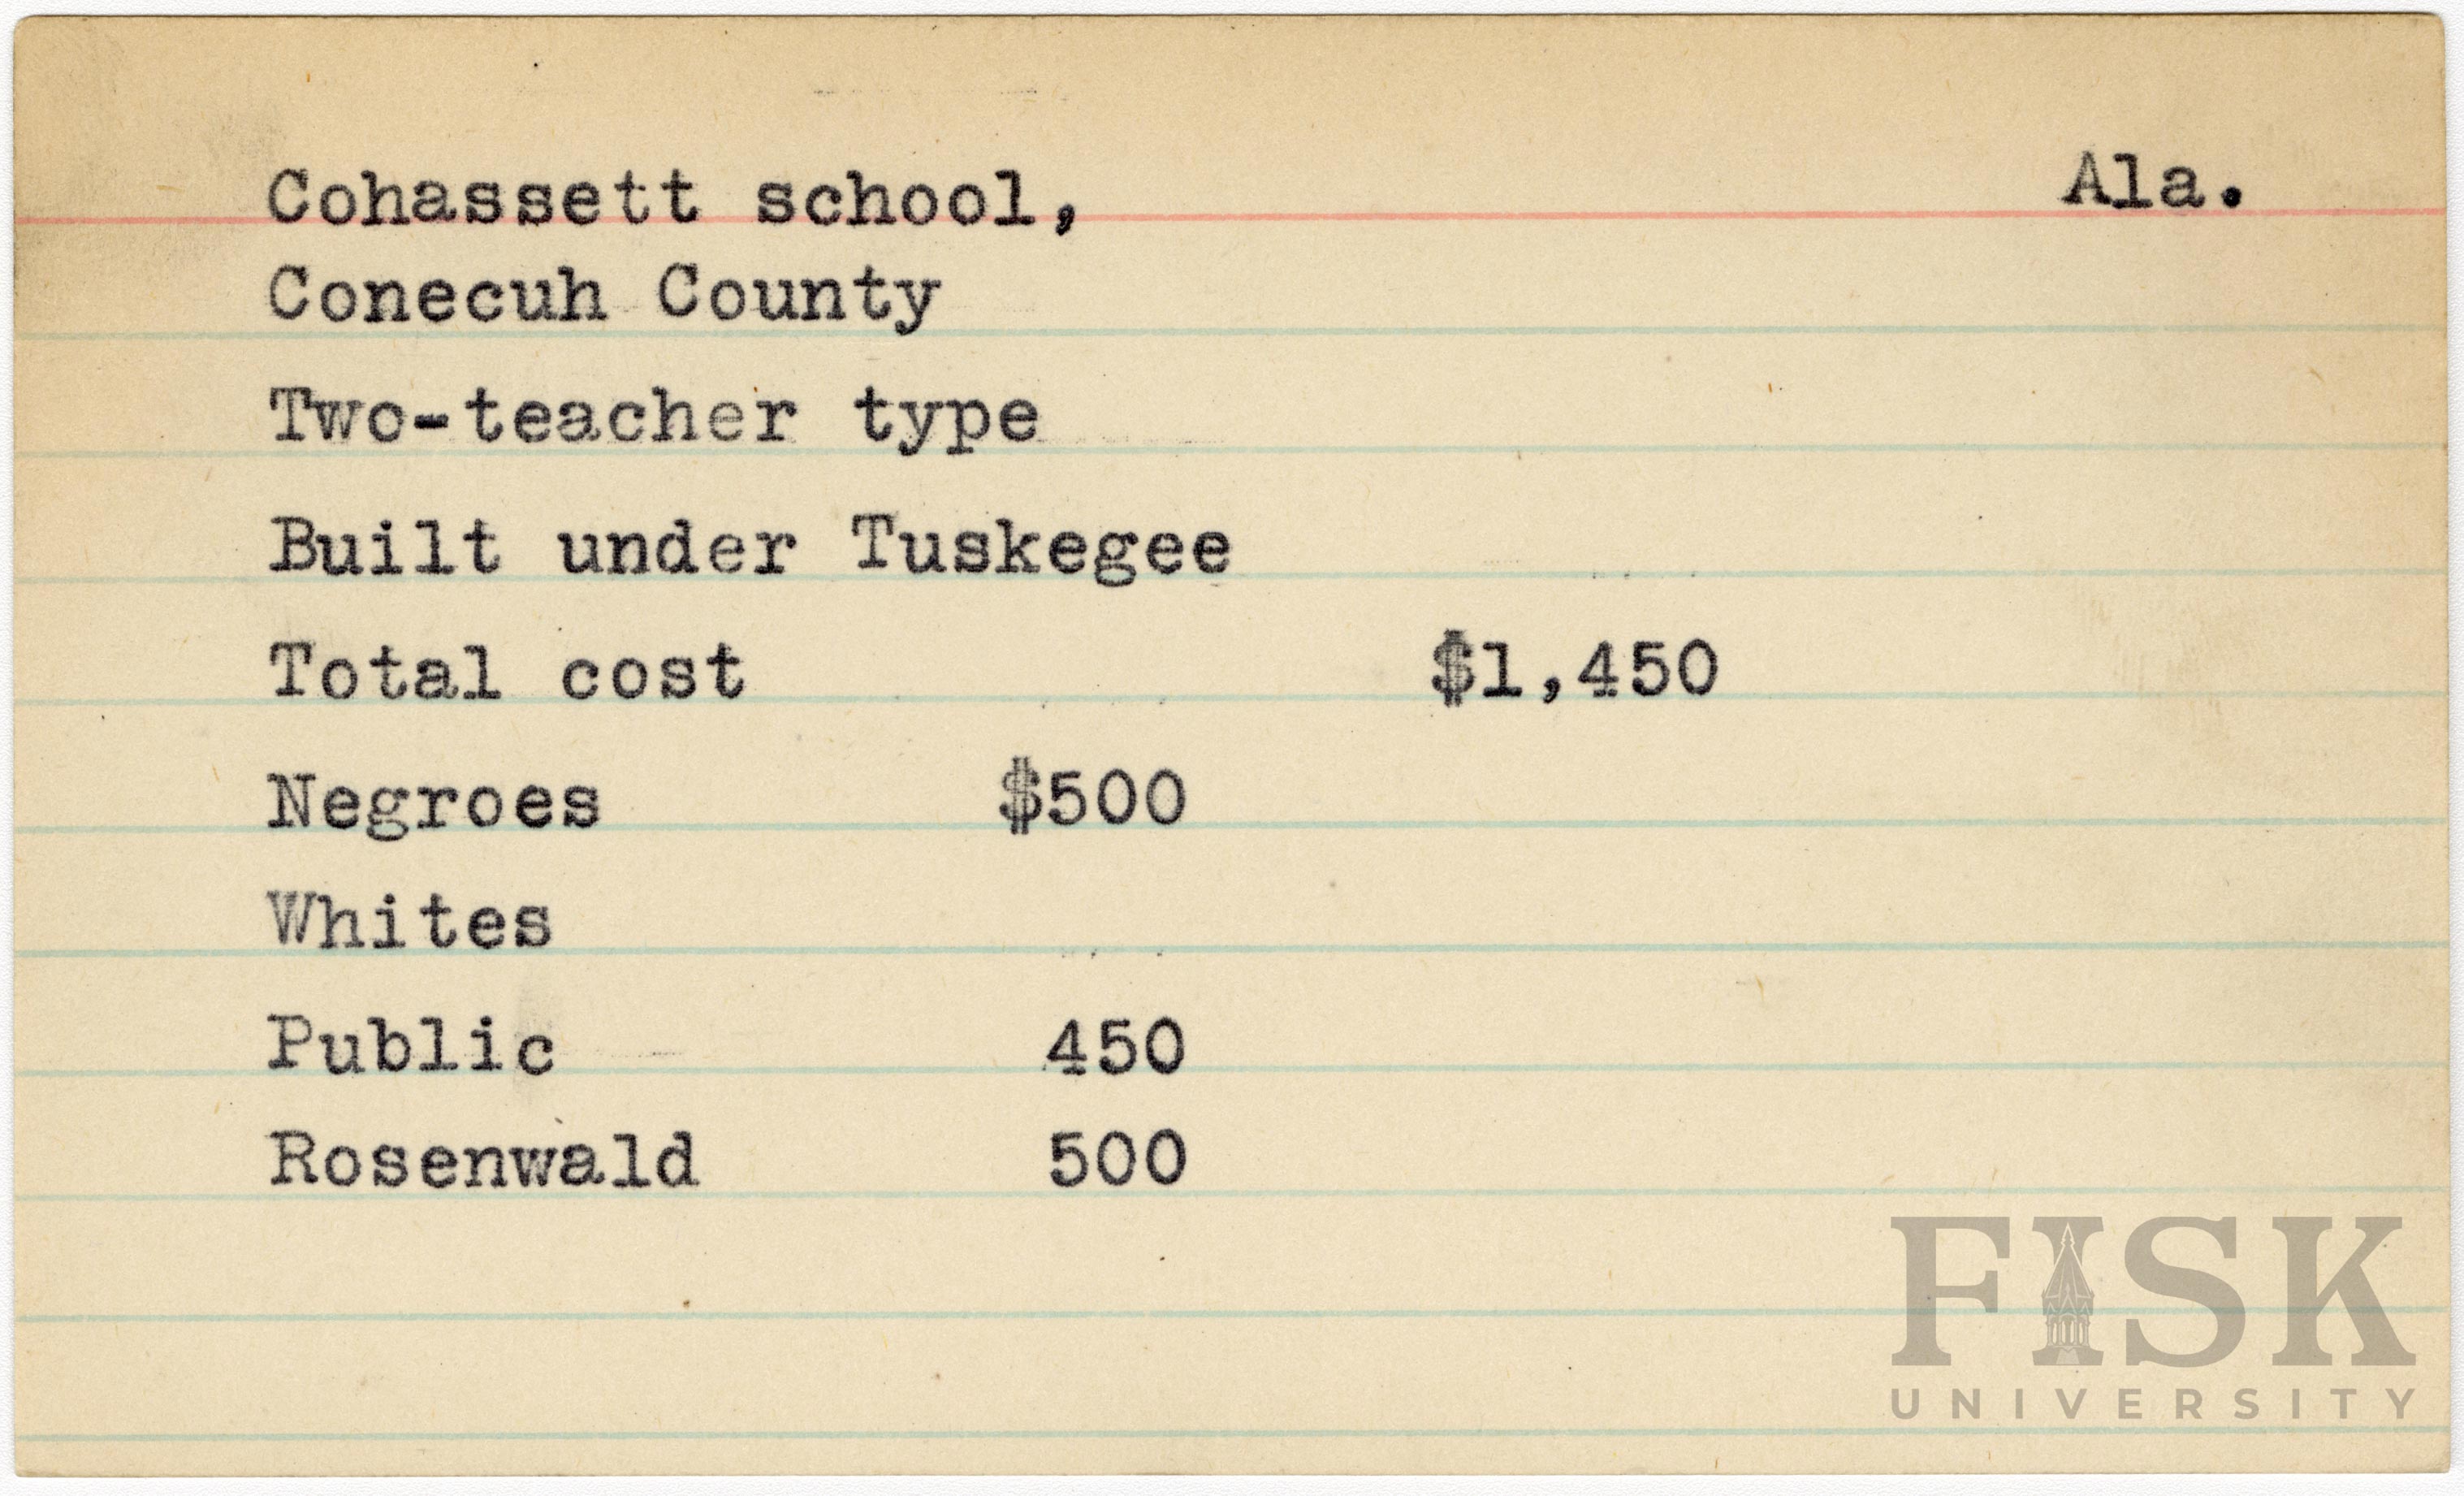 Cohassett school, Ala.
Conecuh County
Two-teacher type
Built under Tuskegee
Total cost $1,450
Negroes $500
Whites
Public 450
Rosenwald 500
FISK
UNIVERSITY